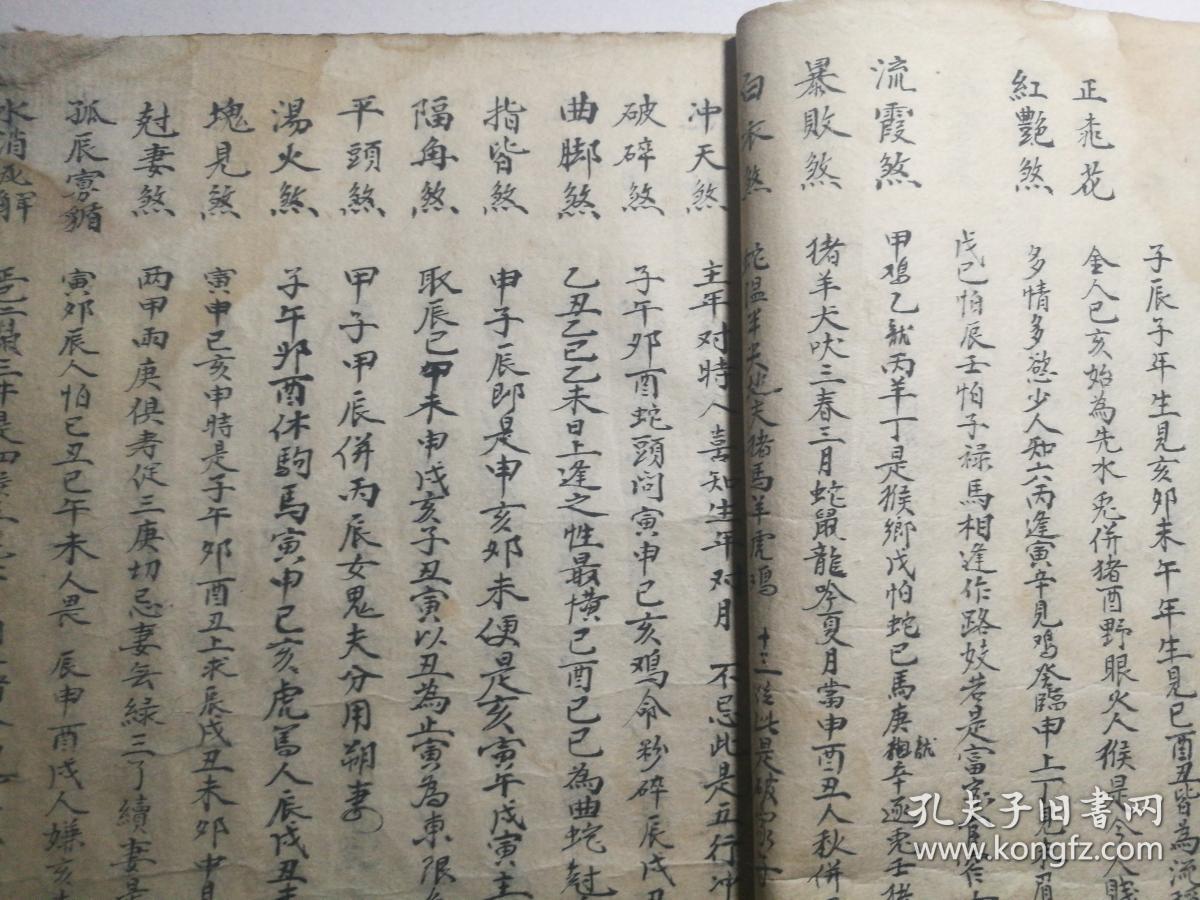 子辰子年生見亥卯未午年生見巳酉丑皆為流
正桃花 金人巳亥始為先水兎併猪酉野眼火人猴是令人賤
紅艷煞 多情多慾少人知六丙逢寅辛見鸡癸臨申上丁見未眉
戊己怕辰壬怕子禄馬相逢作路妓若是富家
流霞煞 甲鸡乙龍丙羊丁是猴鄉戊怕蛇己馬庚龍辛逐兎壬猪
暴敗煞 猪羊犬吠三春三月蛇鼠龍吟夏月當申酉丑人秋併
白衣煞 猪馬羊虎鸡 是破家
冲天煞 主年对時人喜知生年对月 不忌此是五行冲
破碎煞 子午卯酉蛇頭问寅申巳亥鸡命粉碎辰戌丑
曲脚煞 乙丑乙巳乙未日上逢之性最慎己酉己巳為曲蛇尅
指皆煞 申子辰即是申亥卯未便是亥寅午戌寅主
隔角煞 取辰巳未申戌亥子丑寅以丑為止寅為東限
平頭煞 甲子甲辰併丙辰女鬼夫分用朔妻
湯火煞 子午卯酉休駒馬寅申巳亥虎為人辰戌丑未
塊見煞 寅申巳亥申時是子午卯酉丑上求辰戌丑未卯中見
尅妻煞 两甲兩庚俱寿促三庚切忌妻无緑三丁續妻是
孤辰寡 寅卯辰人怕巳丑巳午未人畏 辰申酉戌人嫌亥
水消 解
孔夫子旧書网
www.kongfz.com